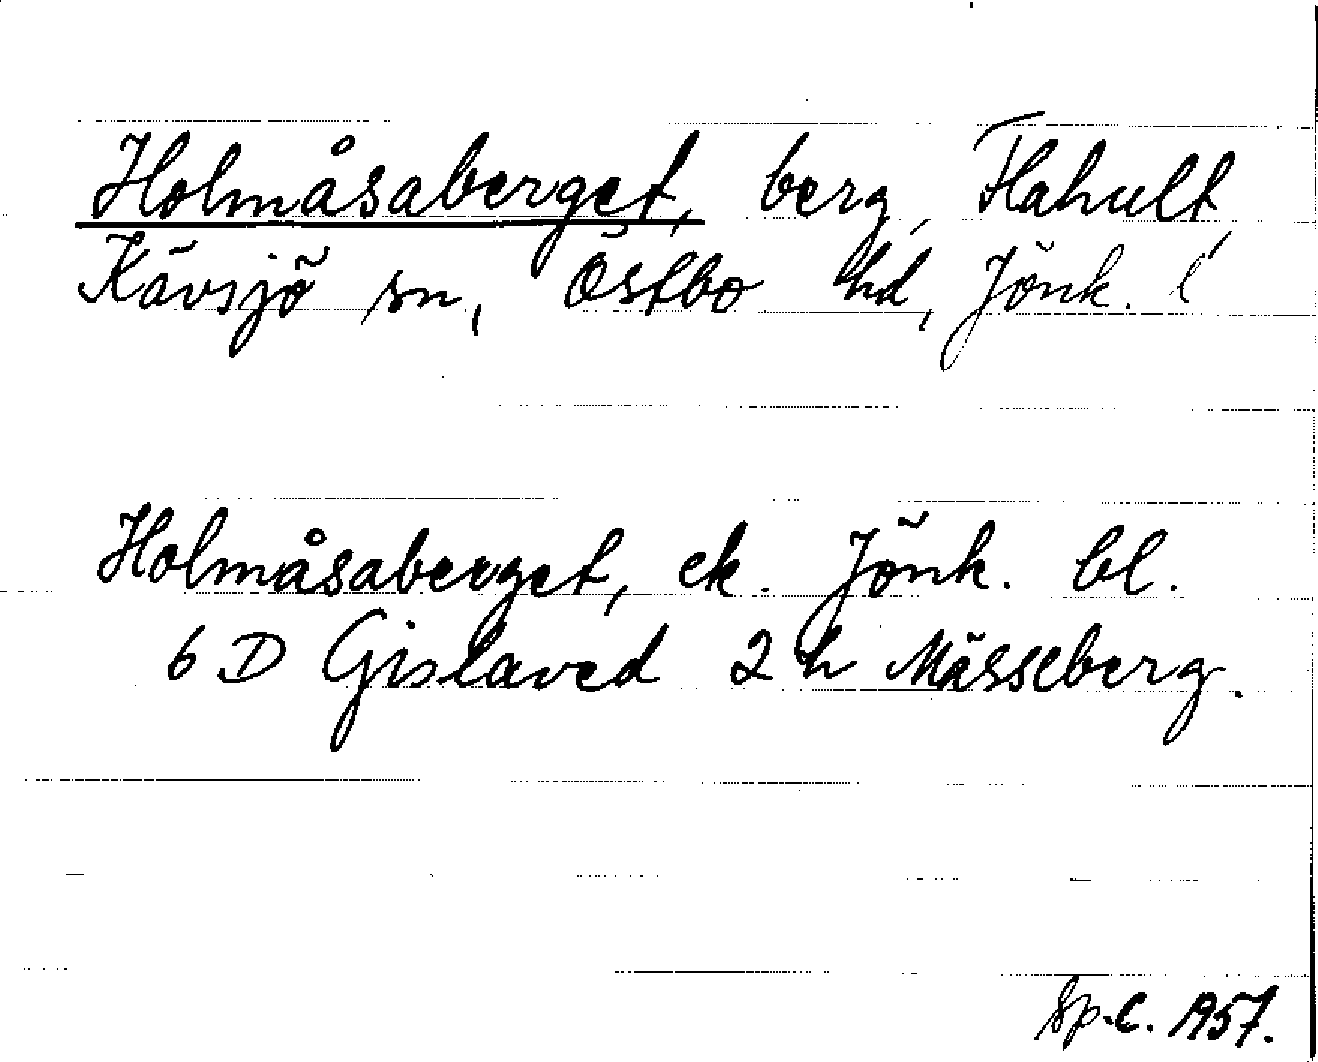 Holmåsaberget, berg, Flahult,
Kävsjö sn, Östbo hd, Jönk. l
Holmåsaberget, ek. Jönk. bl.
6 D Gislaved 2 h Mässeberg.
Sp.C. 1957.